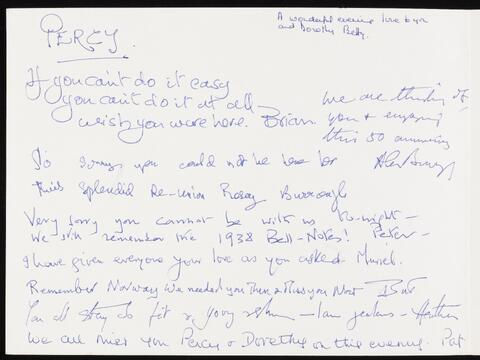 PERCY.
A wonderful evening love to you
and Dorothy Betty.
If you can't do it easy
you can't do it at all –
wish you were here. Brian
We are thinking of
you & enjoying
this 50 anniversary
So sorry you could not be here for
this splendid Re-union Rosay Burrough
Very sorry you cannot be with us to-night –
We still remember the 1938 Bell-Notes! Peter –
I have given everyone your love as you asked Muriel.
Remember Norway We needed you Then & Miss you Now
You all stay so fit & young – I am jealous – Heather
We all miss you Percy & Dorothy on this evening. Pat